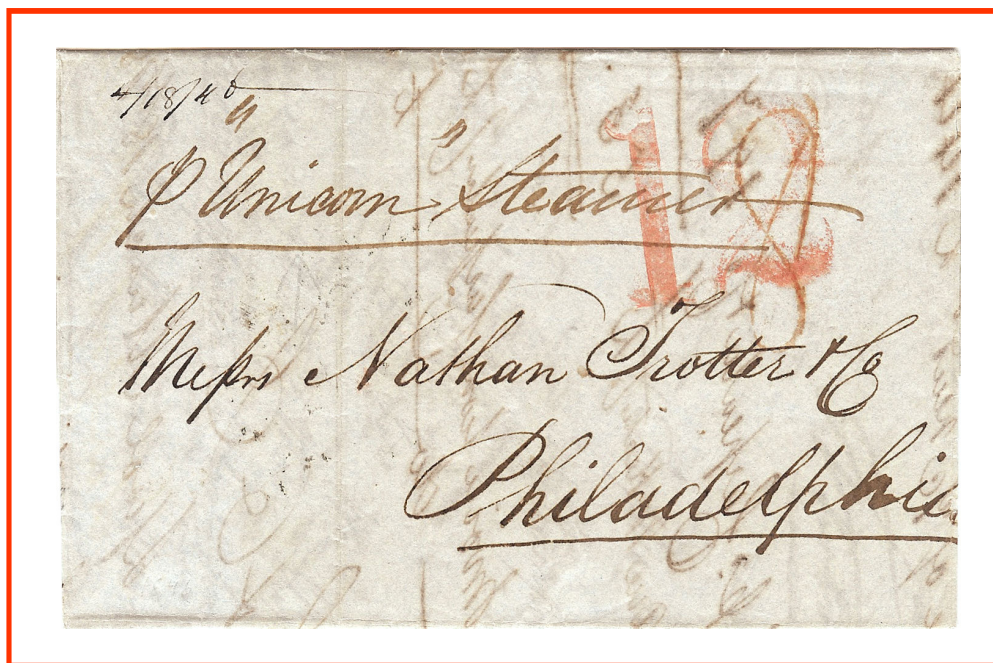 4/18/46
12
P "Unicorn" Steamer
Messrs Nathan Trotter & Co
Philadelphia